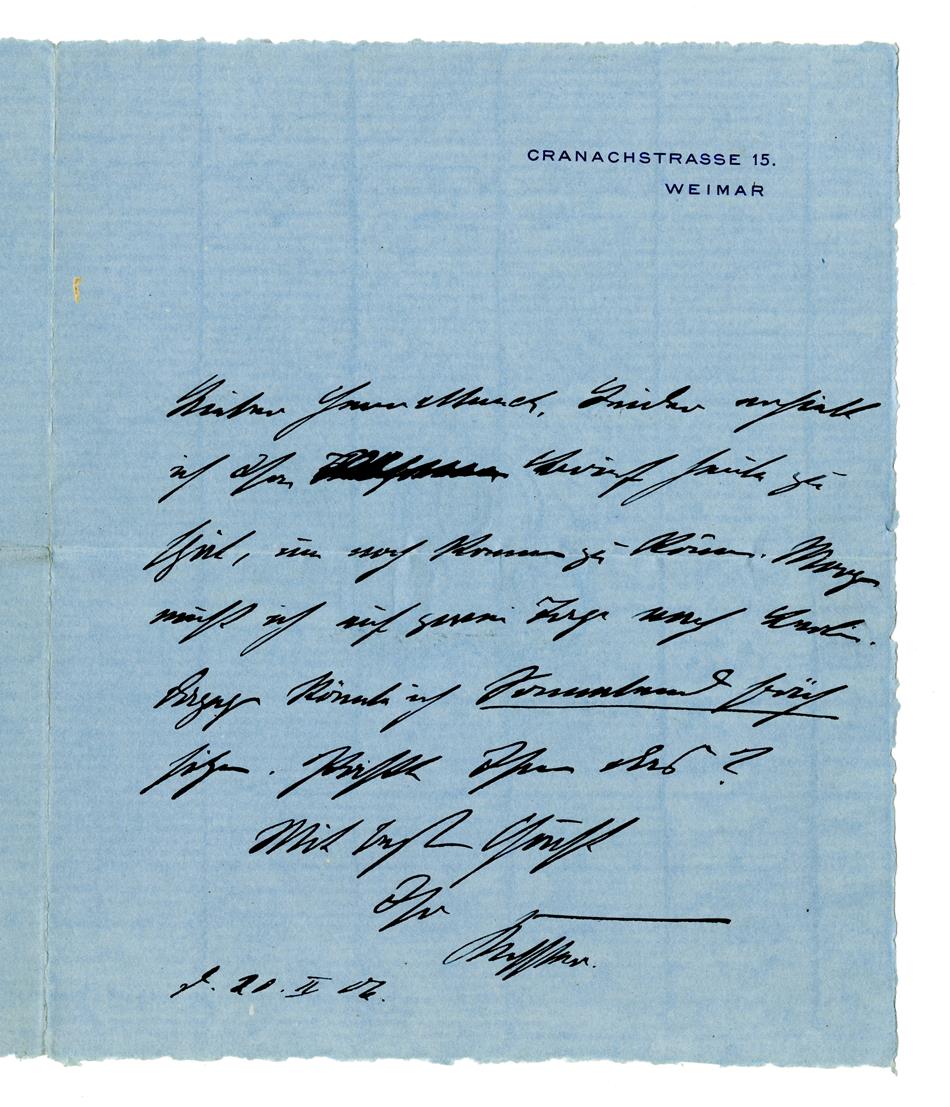 CRANACHSTRASSE 15.
WEIMAR
Lieber Herr Munch, Leider erhielt
ich Ihren Brief heute zu
spät, um noch kommen zu können. Morgen
muß ich auf zwei Tage nach Berlin.
Dagegen könnte ich Sonnabend früh
sitzen. Paßt Ihnen das?
Mit besten Grüßen
Ihr
Kessler.
d. 20. II 06.